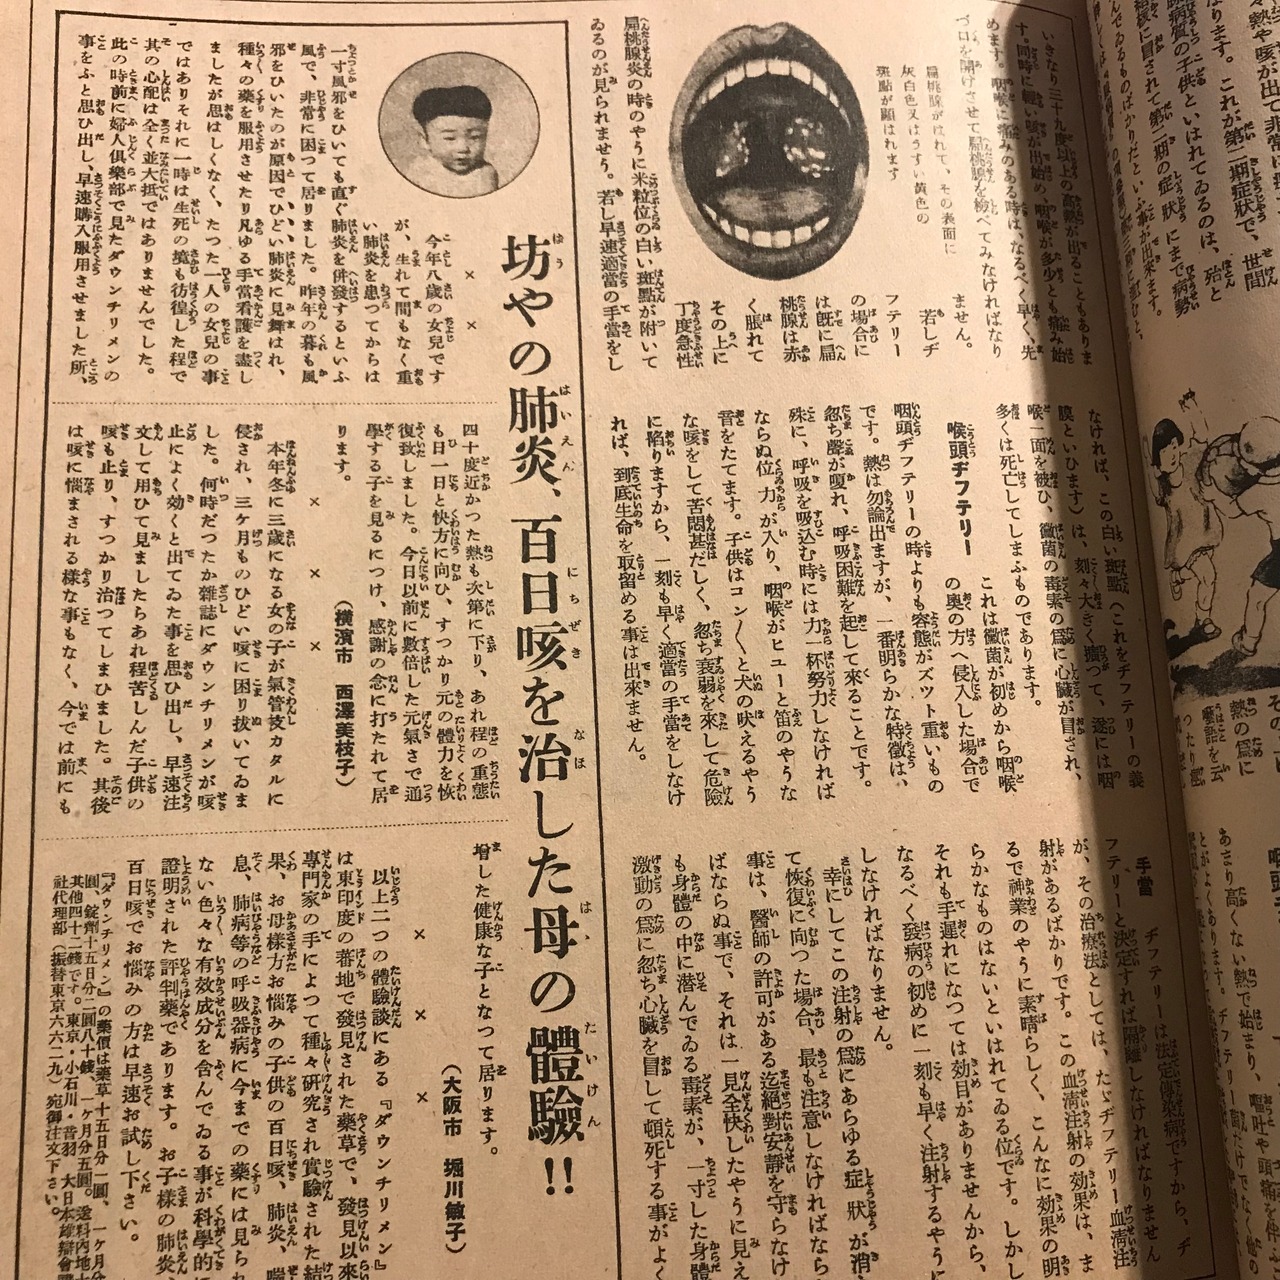 いきなり三十九度以上の高熱が出ることもありま
す。同時に軽い咳が出始め、咽喉が多少とも痛み始
めます。咽喉に痛みのある時は、なるべく早く、先
づ口を開けさせて扁桃腺を検べてみなければなり
ません。
若しヂ
フテリー
の場合に
は既に扁
桃腺は赤
く脹れて
その上に
丁度急性
扁桃腺がはれて、その表面に
灰白色又はうすい黄色の
斑點が顯はれます
扁桃腺炎の時のやうに米粒位の白い斑點が附いて
ゐるのが見られませう。若し早速適當の手當をし
なければ、この白い斑點(これをヂフテリーの義
膜といひます)は、刻々大きく擴つて、遂には咽
喉一面を被ひ、黴菌の毒素の爲に心臓が冒され、
多くは死亡してしまふものであります。
喉頭ヂフテリー
これは黴菌が初めから咽喉
の奥の方へ侵入した場合で
咽頭ヂフテリーの時よりも容態がズツト重いもの
です。熱は勿論出ますが、一番明らかな特徴は、
忽ち聲が嗄れ、呼吸困難を起して來ることです。
殊に、呼吸を吸込む時には力一杯努力しなければ
ならぬ位力が入り、咽喉がヒューと笛のやうな
音をたてます。子供はコン〳〵と犬の吠えるやう
な咳をして苦悶甚だしく、忽ち衰弱を來して危險
に陥りますから、一刻も早く適當の手當をしなけ
れば、到底生命を取留める事は出來ません。
手當
ヂフテリーは法定傳染病ですから、ヂ
フテリーと決定すれば隔離しなければなりません
が、その治療法としては、たゞヂフテリー血清注
射があるばかりです。この血清注射の効果は、ま
るで神業のやうに素晴らしく、こんなに効果の明
らかなものはないといはれてゐる位です。しかし
それも手遅れになつては効目がありませんから、
なるべく發病の初めに一刻も早く注射するやうに
しなければなりません。
幸にしてこの注射の爲にあらゆる症狀が消
て恢復に向つた場合、最も注意しなければならな
事は、醫師の許可がある迄絕對安靜を守らなけ
ばならぬ事で、それは一見全快したやうに見え
も身體の中に潜んでゐる毒素が、一寸した身體
激動の爲に忽ち心臓を冒して頓死する事がよく
坊やの肺炎、百日咳を治した母の體驗!!
× ×
今年八歳の女兒です
が、生れて間もなく重
い肺炎を患つてからは
一寸風邪をひいても直ぐ肺炎を併發するといふ
風で、非常に困つて居りました。昨年の暮も風
邪をひいたのが原因でひどい肺炎に見舞はれ、
種々の薬を服用させたり凡ゆる手當看護を盡し
ましたが思はしくなく、たつた一人の女兒の事
ではありそれに一時は生死の境も彷徨した程で
其の心配は全く並大抵ではありませんでした。
此の時前に婦人倶樂部で見たダウンチリメンの
事をふと思ひ出し、早速購入服用させました所、
四十度近かつた熱も次第に下り、あれ程の重態
も日一日と快方に向ひ、すつかり元の體力を恢
復致しました。今日以前に數倍した元氣さで通
學する子を見るにつけ、感謝の念に打たれて居
ります。
(橫濱市 西澤美枝子)
× × ×
本年冬に三歳になる女の子が氣管支カタルに
侵され、三ケ月ものひどい咳に困り拔いてゐま
した。何時だつたか雜誌にダウンチリメンが咳
止によく効くと出てゐた事を思ひ出し、早速注
文して用ひて見ましたらあれ程苦しんだ子供の
咳も止り、すつかり治つてしまひました。其後
は咳に惱まされる樣な事もなく、今では前にも
增した健康な子となつて居ります。
(大阪市 堀川敏子)
× × ×
以上二つの體驗談にある『ダウンチリメン』
は東印度の蕃地で發見された藥草で、發見以來
專門家の手によつて種々研究され實驗された結
果、お母樣方お惱みの子供の百日咳、肺炎、喘
息、肺病等の呼吸器病に今までの藥には見られ
ない色々な有效成分を含んでゐる事が科學的に
證明された評判藥であります。お子樣の肺炎、
百日咳でお惱みの方は早速お試し下さい。
『ダウンチリメン』の藥價は藥草十五日分一圓、一ケ月分
圓、錠劑十五日分二圓八十錢、一ケ月分五圓。送料內地十
其他四十二錢です。東京・小石川・音羽 大日本雄辯會
社代理部(振替東京六六二九)宛御注文下さい。